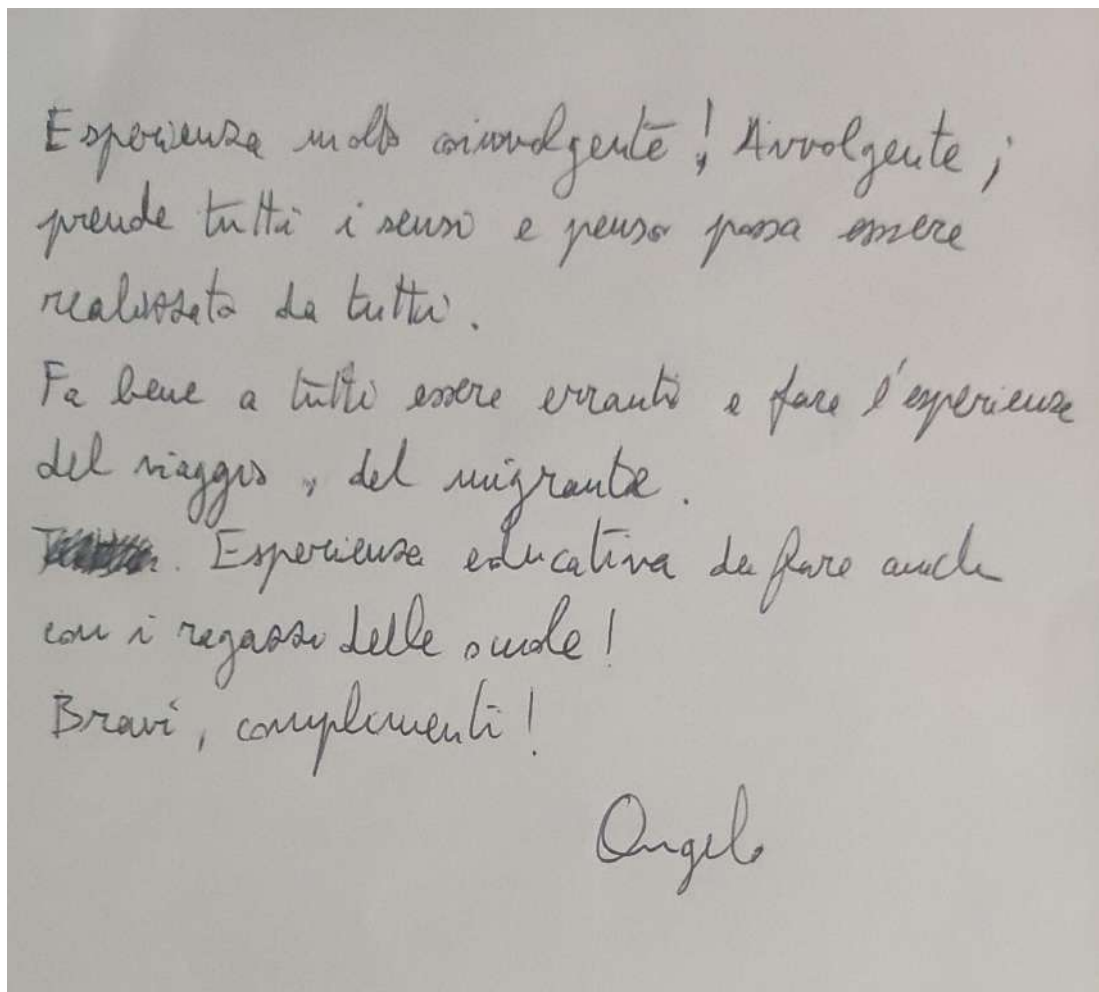 Esperienza molto coinvolgente! Avvolgente;
prende tutti i sensi e penso possa essere
realizzata da tutti.
Fa bene a tutti essere erranti e fare l'esperienza
del viaggio, del migrante.
. Esperienza educativa da fare anche
con i ragazzi delle scuole!
Bravi, complimenti!
Angelo